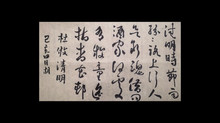 清明時節雨
紛紛路上行人
欲斷魂借問
酒家何處
有牧童遙
指杏花村
杜牧清明
己亥四月